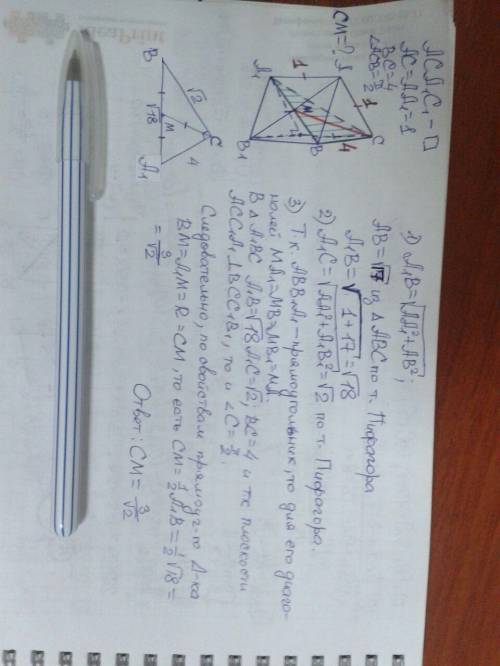 ACA1C1 – □
AC = AA1 = 1
BC = 4
∠ACB = π/2
CM = ?
A1
A
1
1
M
C
4
B1
B
1) A1B = √AA1² + AB²;
AB = √17 из ΔABC по т. Пифагора
A1B = √1 + 17 = √18
2) A1C = √AA1² + A1B1² = √2 по т. Пифагора.
3) Т.к. ABB1A1 – прямоугольник, то для его диаго-
налей MA1 = MB = MB1 = MA.
В Δ A1BC A1B = √18 A1C = √2; BC = 4 и т.к плоскости
ACC1A1 ⊥ BCC1B1, то и ∠C = π/2.
Следовательно, по свойствам прямоуг-го Δ-ка
BM = A1M = R = CM, то есть CM = 1/2 A1B = 1/2 √18 =
= 3/√2
B
√2
C
√18
M
4
A1
Ответ: CM = 3/√2